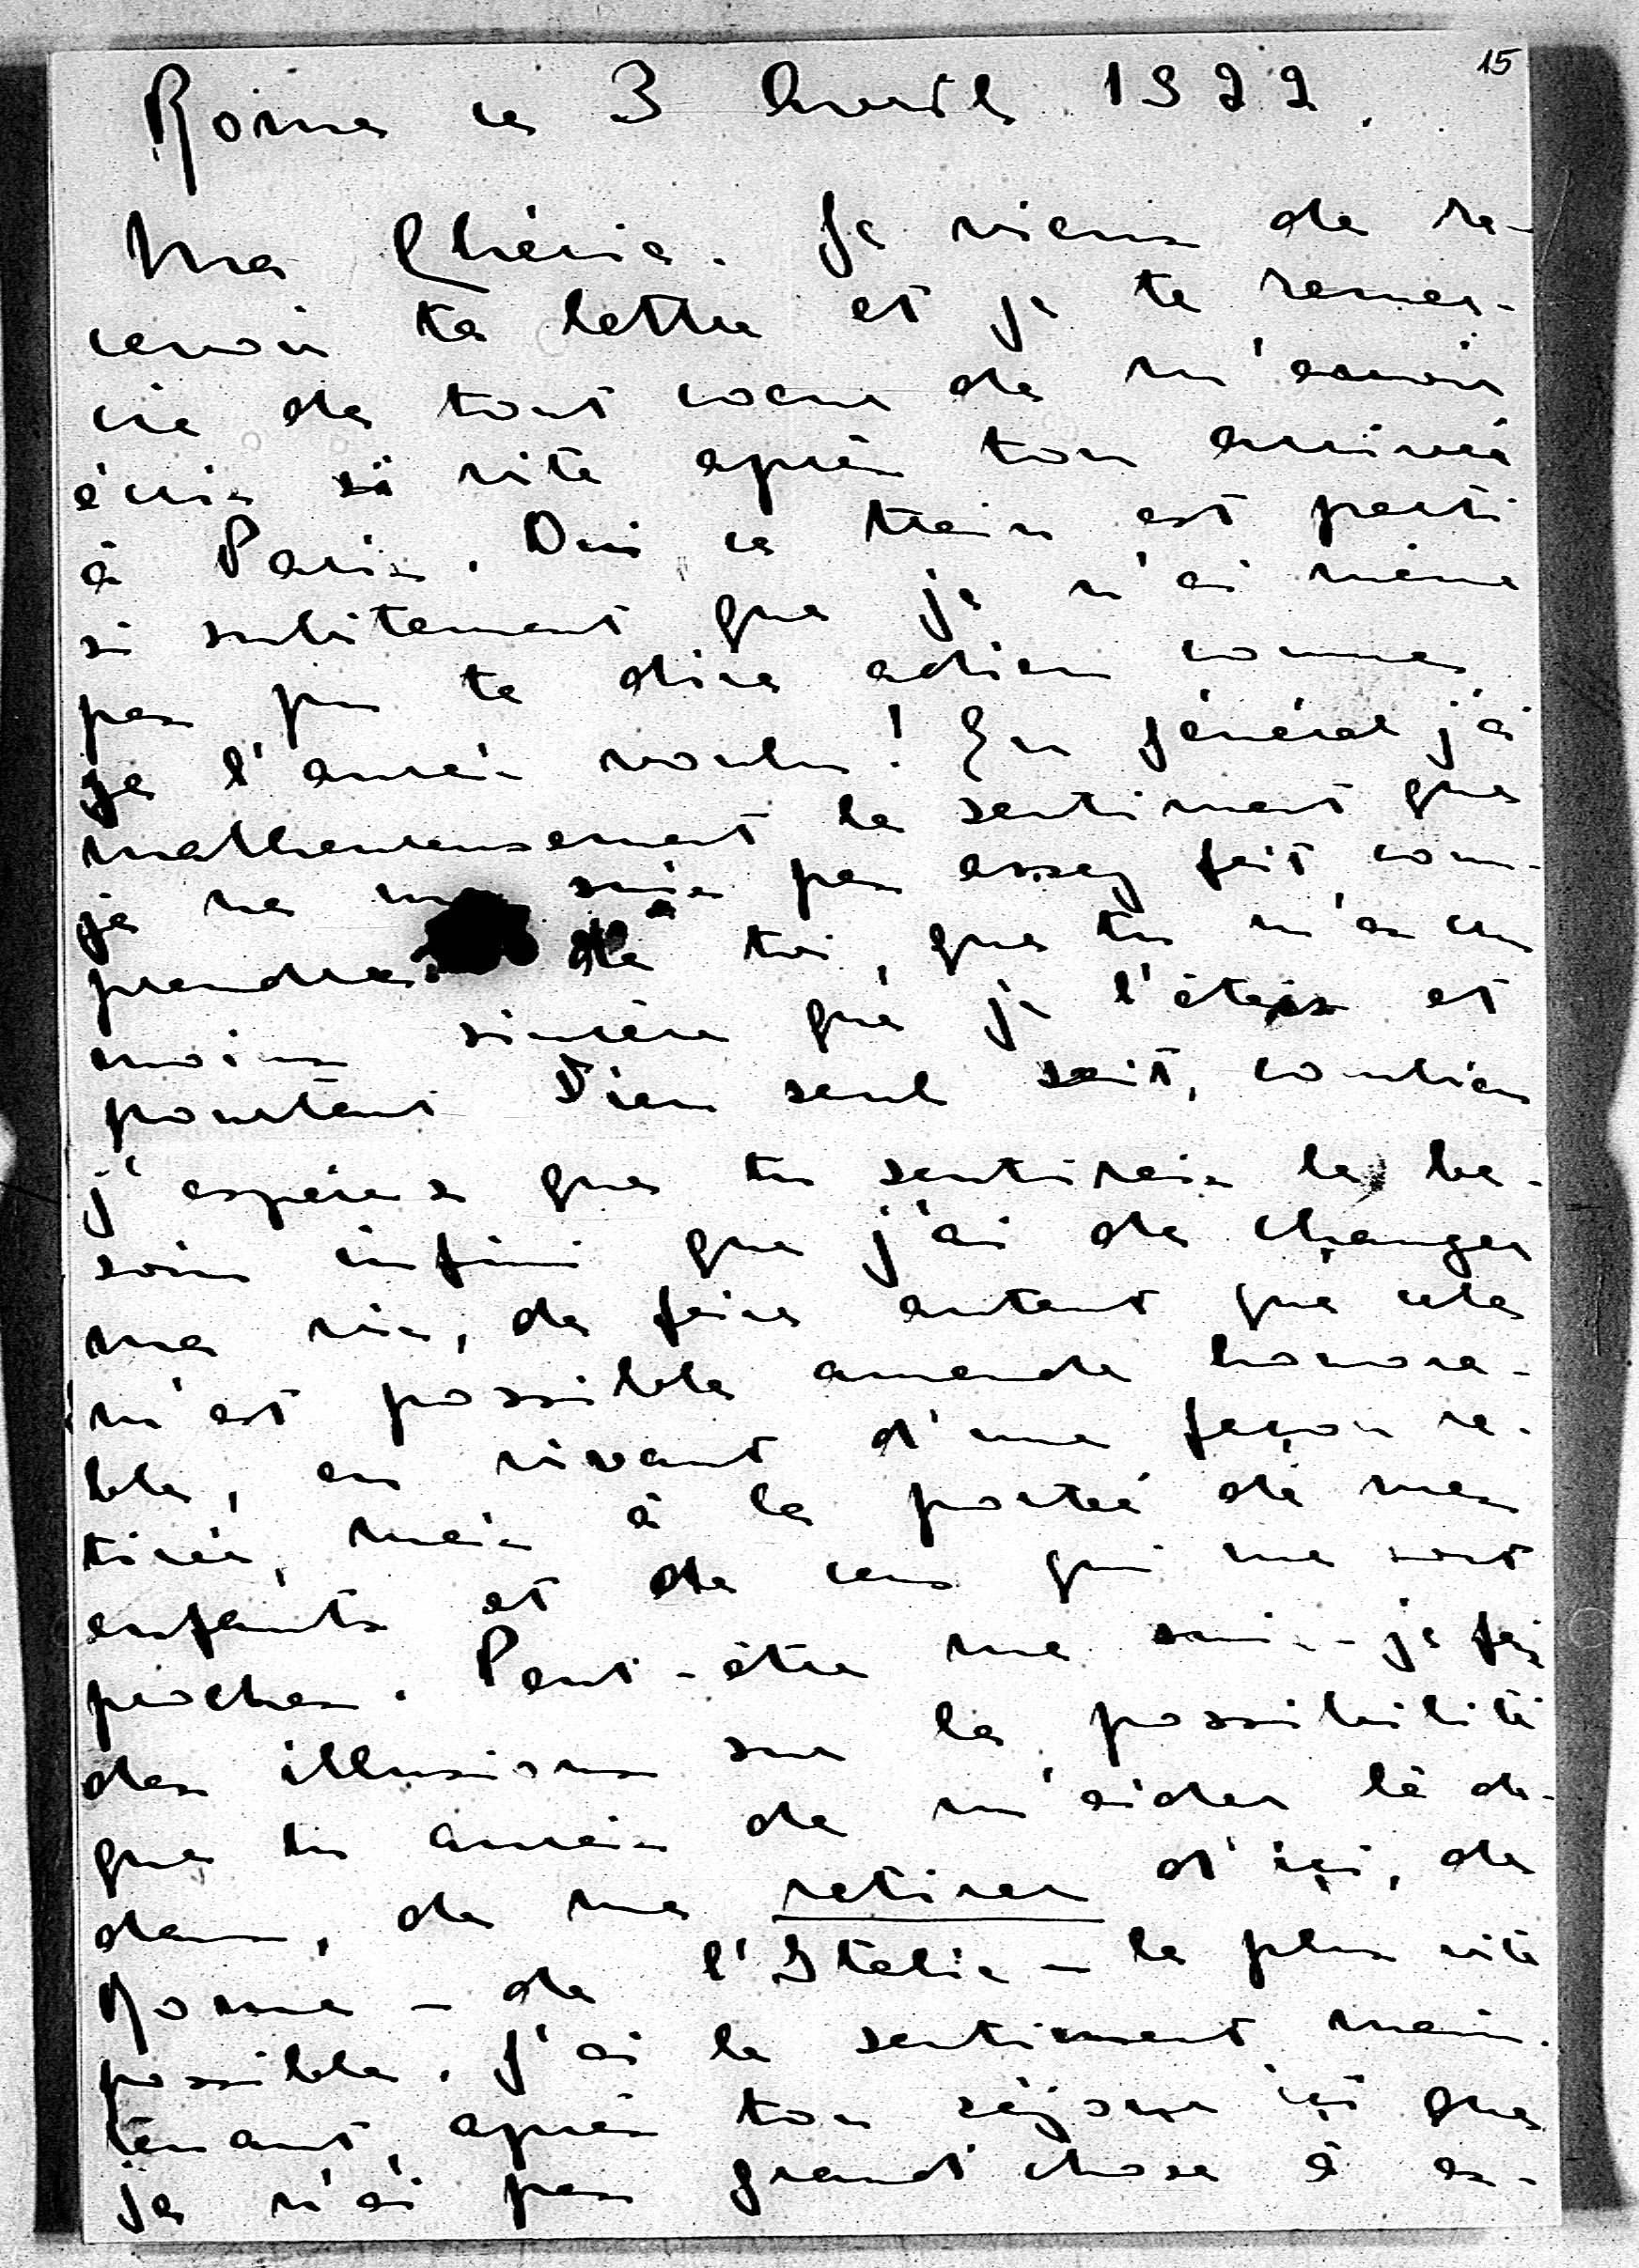 15
Rome ce 3 Avril 1922.
Ma Chérie. Je viens de re-
cevoir ta lettre et je te remer-
cie de tout coeur de m'avoir
écris si vite après ton arrivée
à Paris. Oui ce train est parti
si subitement que je n'ai même
pas pu te dire adieu comme
je l'aurais voulu! En général j'ai
malheureusement le sentiment que
je ne me suis pas assez fait com-
prendre de toi, que tu m'as cru
moins sincère que je l'étais et
pourtant Dieu seul sait, combien
j'espérais que tu sentirais le be-
soin infini que j'ai de changer
ma vie, de faire autant que cela
m'est possible amende honora-
ble, en vivant d'une façon re-
tirée, mais à la portée de mes
enfants et de ceux qui me sont
proches. Peut-être me suis-je fais
des illusions sur la possibilité
que tu aurais de m'aider là de-
dans, de me retirer d'içi, de
Rome - de l'Italie - le plus vite
possible. J'ai le sentiment main-
tenant, après ton séjour içi que
je n'ai pas grand'chose à es-